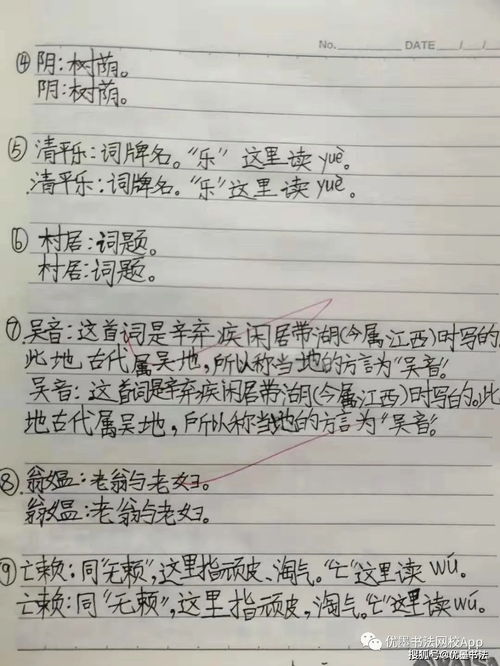 No. DATE / /
④阴:树荫。
阴:树荫。
⑤清平乐:词牌名。"乐"这里读yuè。
清平乐:词牌名。"乐"这里读yuè。
⑥村居:词题。
村居:词题。
⑦吴音:这首词是辛弃疾闲居带湖(今属江西)时写的,
此地古代属吴地,所以称当地的方言为"吴音"。
吴音:这首词是辛弃疾闲居带湖(今属江西)时写的。此
地古代属吴地,所以称当地的方言为"吴音"。
⑧翁媪:老翁与老妇。
翁媪:老翁与老妇。
⑨亡赖:同"无赖",这里指顽皮、淘气。"亡"这里读wú。
亡赖:同"无赖",这里指顽皮,淘气。"亡"这里读wú。
优墨书法网校App
搜狐号@优墨书法